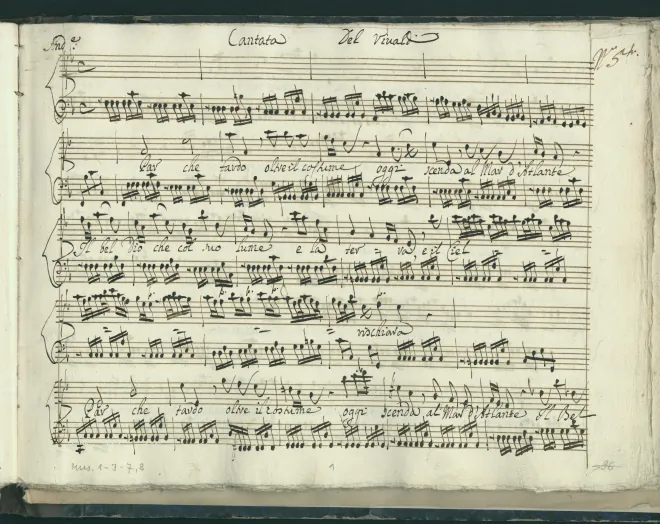 And.e Cantata Del Vivaldi
Par che tardo oltre il costume oggi scenda al Mar d'Atlante
Il bel Dio che col suo lume e la ter = ra, e il Ciel = =
= = = rischiara
Par che tardo oltre il costume, oggi scenda, al Mar d'Atlante Il Bel
Mus. 1-J-7,8 1